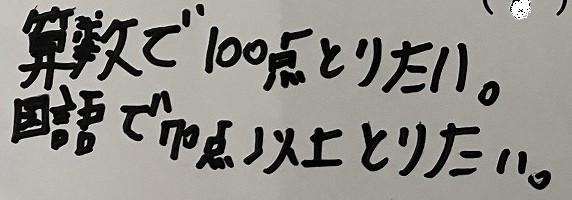 算数で100点とりたい。
国語で70点以上とりたい。